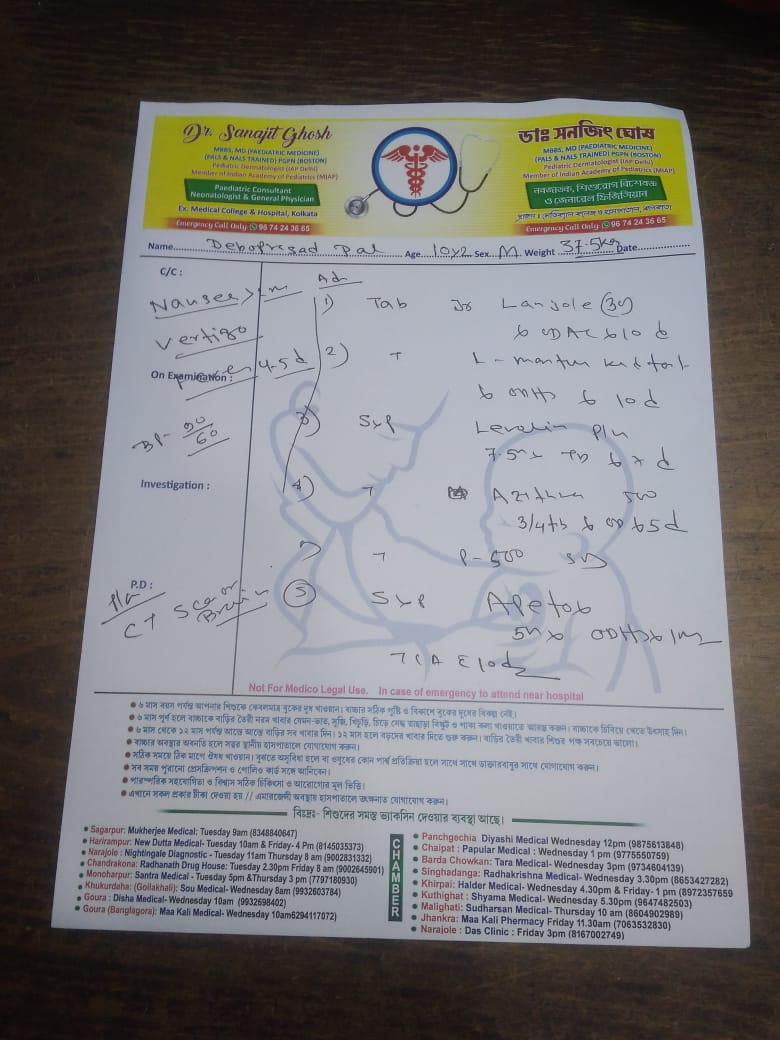 Dr. Sanajit Ghosh
MBBS, MD (PAEDIATRIC MEDICINE)
(PALS & NALS TRAINED) PGPN (BOSTON)
Pediatric Dermatologist (IAP Delhi)
Member of Indian Academy of Pediatrics (MIAP)
Paediatric Consultant
Neonatologist & General Physician
Ex. Medical College & Hospital, Kolkata
Emergency Call Only: 96 74 24 36 65
ডাঃ সনজিৎ ঘোষ
MBBS, MD (PAEDIATRIC MEDICINE)
(PALS & NALS TRAINED) PGPN (BOSTON)
Pediatric Dermatologist (IAP Delhi)
Member of Indian Academy of Pediatrics (MIAP)
নবজাতক, শিশুরোগ বিশেষজ্ঞ
ও জেনারেল ফিজিশিয়ান
Emergency Call Only: 96 74 24 36 65
Name Debaprasad Pal Age 10y2 Sex M Weight 37.5kg Date
C/C :
Adv
Nausea > 1m
Vertigo
On Examination :
4-5 d
BP- 90/60
Investigation :
P.D :
CT Scan of Brain
1) Tab Jr Lanzole (30)
10 d
2)
10 d
3) Syp
7.5ml
4) 500
5d
P-500
5 Syp Apetob
5ml
Not For Medico Legal Use. In case of emergency to attend near hospital
৬ মাস বয়স পর্যন্ত আপনার শিশুকে কেবলমাত্র বুকের দুধ খাওয়ান। বাচ্চার সঠিক পুষ্টি ও বিকাশে বুকের দুধের বিকল্প নেই।
৬ মাস পূর্ণ হলে বাচ্চাকে বাড়ির তৈরী নরম খাবার যেমন-ভাত, সুজি, খিচুড়ি, চিঁড়ে সেদ্ধ তাছাড়া বিস্কুট ও পাকা কলা খাওয়াতে আরম্ভ করুন। বাচ্চাকে চিবিয়ে খেতে উৎসাহ দিন।
৬ মাস থেকে ১২ মাস পর্যন্ত আস্তে আস্তে বাড়ির সব খাবার দিন। ১২ মাস হলে বড়দের খাবার দিতে শুরু করুন। বাড়ির তৈরী খাবার শিশুর পক্ষে সবচেয়ে ভালো।
বাচ্চার অবস্থার অবনতি হলে সত্বর স্থানীয় হাসপাতালে যোগাযোগ করুন।
সঠিক সময়ে ঠিক মাপে ঔষধ খাওয়ান। বুঝতে অসুবিধা হলে বা ওষুধের কোন পার্শ্ব প্রতিক্রিয়া হলে সাথে সাথে ডাক্তারবাবুর সাথে যোগাযোগ করুন।
সব সময় পুরানো প্রেসক্রিপশন ও পোলিও কার্ড সঙ্গে আনিবেন।
পারস্পরিক সহযোগিতা ও বিশ্বাস সঠিক চিকিৎসা ও আরোগ্যের মূল ভিত্তি।
এখানে সকল প্রকার টীকা দেওয়া হয় // এমারজেন্সী অবস্থায় হাসপাতালে তৎক্ষনাত যোগাযোগ করুন।
বিঃদ্রঃ- শিশুদের সমস্ত ভ্যাকসিন দেওয়ার ব্যবস্থা আছে।
Sagarpur: Mukherjee Medical: Tuesday 9am (8348840647)
Harirampur: New Dutta Medical- Tuesday 10am & Friday- 4 Pm (8145035373)
Narajole : Nightingale Diagnostic - Tuesday 11am Thursday 8 am (9002831332)
Chandrakona: Radhanath Drug House: Tuesday 2.30pm Friday 8 am (9002645901)
Monoharpur: Santra Medical - Tuesday 5pm & Thursday 3 pm (7797180930)
Khukurdaha: (Gollakhali): Sou Medical- Wednesday 8am (9932603784)
Goura : Disha Medical- Wednesday 10am (9932698402)
Goura (Banglagora): Maa Kali Medical- Wednesday 10am6294117072)
CHAMBER
Panchgechia Diyashi Medical Wednesday 12pm (9875613848)
Chaipat : Papular Medical : Wednesday 1 pm (9775550759)
Barda Chowkan: Tara Medical- Wednesday 3pm (9734604139)
Singhadanga: Radhakrishna Medical- Wednesday 3.30pm (8653427282)
Khirpai: Halder Medical- Wednesday 4.30pm & Friday- 1 pm (8972357659
Kuthighat : Shyama Medical- Wednesday 5.30pm (9647482503)
Malighati: Sudharsan Medical- Thursday 10 am (8604902989)
Jhankra: Maa Kali Pharmacy Friday 11.30am (7063532830)
Narajole : Das Clinic : Friday 3pm (8167002749)